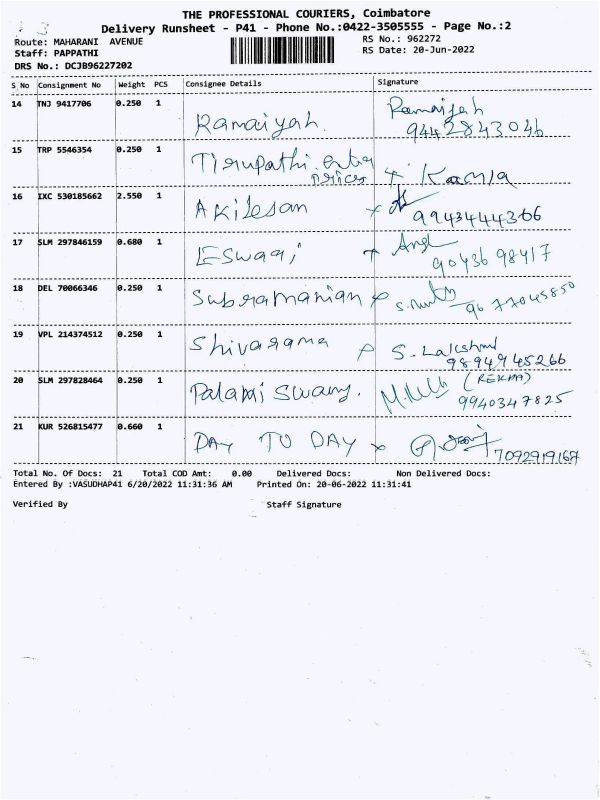 THE PROFESSIONAL COURIERS, Coimbatore
Delivery Runsheet - P41 - Phone No.:0422-3505555 - Page No.:2
Route: MAHARANI AVENUE
RS No.: 962272
Staff: PAPPATHI
RS Date: 20-Jun-2022
DRS No.: DCJB96227202
S No Consignment No Weight PCS Consignee Details Signature
14 TNJ 9417706 0.250 1 Ramaiyah. Ramaiyah
9442843046
15 TRP 5546354 0.250 1 Tirupathi. Enter
prices x Kamla
16 IXC 530185662 2.550 1 Akilesan x
9943444366
17 SLM 297846159 0.680 1 Eswari
9043698417
18 DEL 70066346 0.250 1 Subramanian
9677045850
19 VPL 214374512 0.250 1 Shivarama S. Lakshmi
9894945266
20 SLM 297828464 0.250 1 Palani Swamy. (REKHA)
9940347825
21 KUR 526815477 0.660 1 DAY TO DAY x
7092919167
Total No. Of Docs: 21 Total COD Amt: 0.00 Delivered Docs: Non Delivered Docs:
Entered By :VASUDHAP41 6/20/2022 11:31:36 AM Printed On: 20-06-2022 11:31:41
Verified By Staff Signature